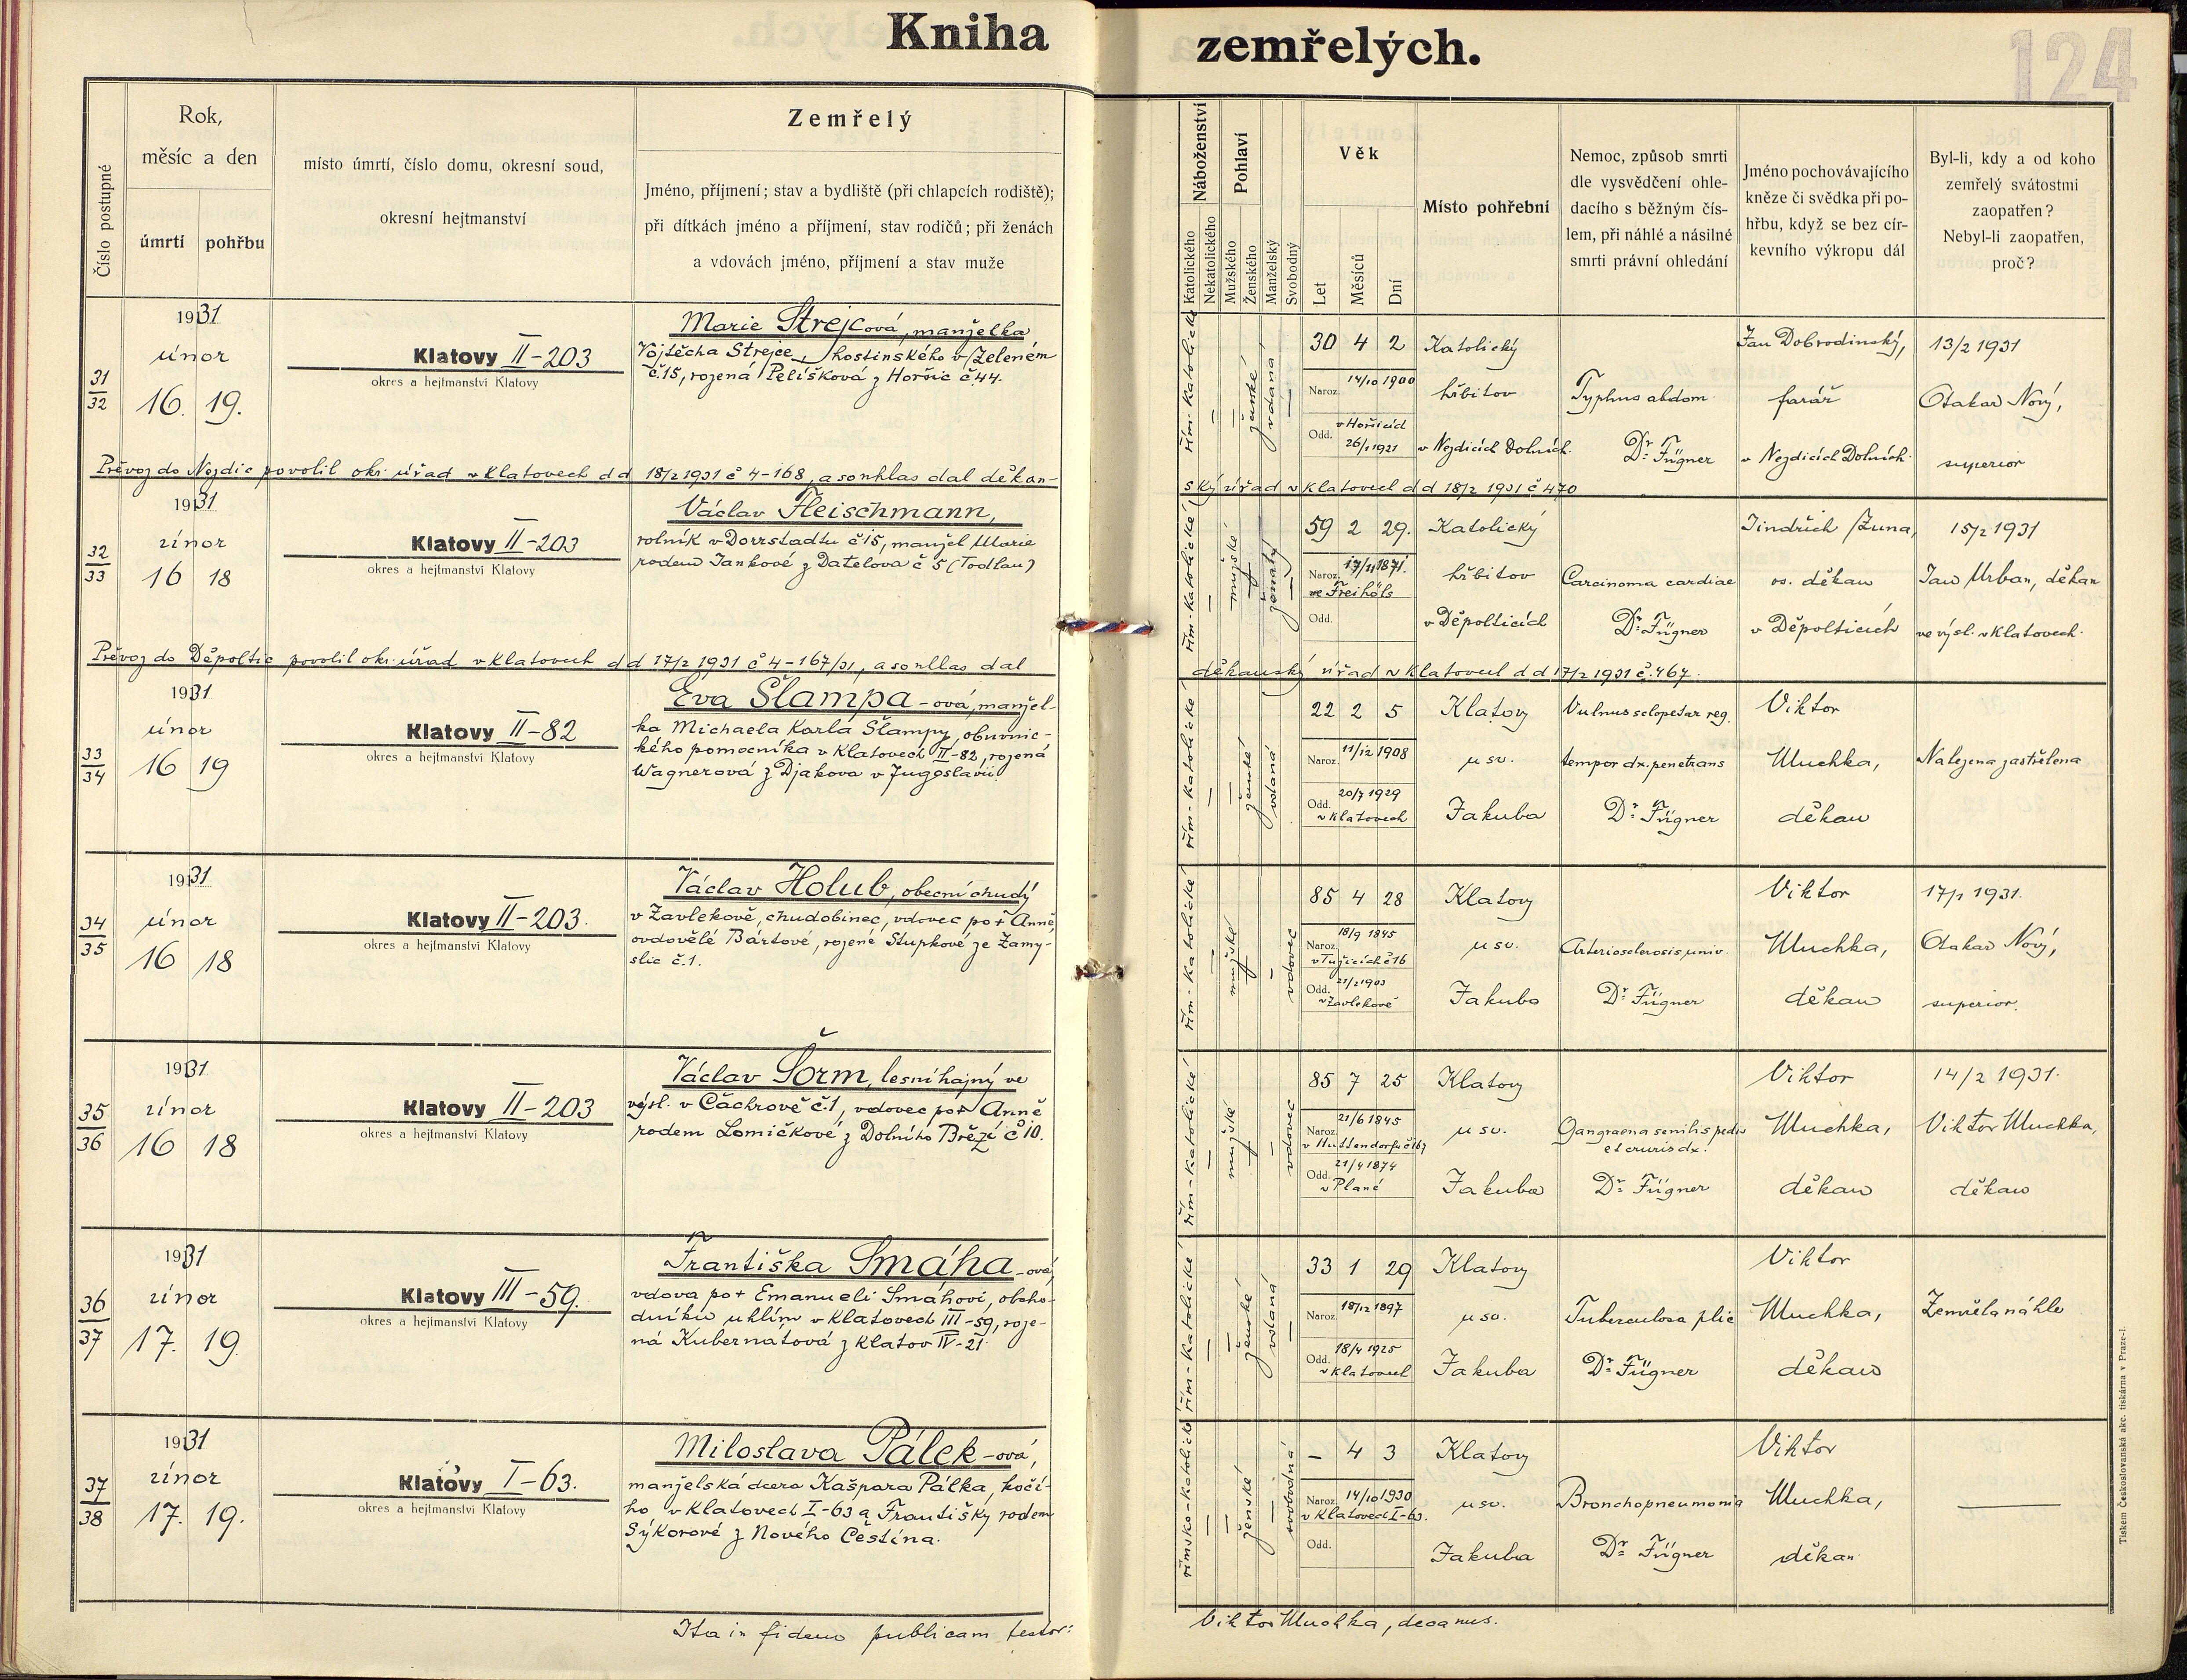 Kniha zemřelých.
124
Číslo postupné
Rok,
měsíc a den
úmrtí
pohřbu
místo úmrtí, číslo domu, okresní soud,
okresní hejtmanství
Zemřelý
Jméno, příjmení; stav a bydliště (při chlapcích rodiště);
při dítkách jméno a příjmení, stav rodičů; při ženách
a vdovách jméno, příjmení a stav muže
Náboženství
Katolického
Nekatolického
Pohlaví
Mužského
Ženského
Manželský
Svobodný
Věk
Let
Měsíců
Dní
Místo pohřební
Nemoc, způsob smrti
dle vysvědčení ohle-
dacího s běžným čís-
lem, při náhlé a násilné
smrti právní ohledání
Jméno pochovávajícího
kněze či svědka při po-
hřbu, když se bez cír-
kevního výkropu dál
Byl-li, kdy a od koho
zemřelý svátostmi
zaopatřen?
Nebyl-li zaopatřen,
proč?
31
32
1931
únor
16. 19.
Klatovy II-203
okres a hejtmanství Klatovy
Marie Strejcová, manželka
Vojtěcha Strejce, hostinského v Zeleném
č.15, rozená Pelíšková z Horšic č.44.
řím. katolické
ženské
vdaná
30 4 2
Naroz. 14/10 1900
v Horšicích
Odd. 26/1 1921
Katolický
hřbitov
v Nezdicích Dolních.
Typhus abdom.
Dr. Fügner
Jan Dobrodinský,
farář
v Nezdicích Dolních.
13/2 1931
Otakar Nový,
superior
Převoz do Nezdic povolil okr. úřad v Klatovech dd 18/2 1931 č 4-168, a souhlas dal děkan-
ský úřad v Klatovech dd 18/2 1931 č 470
32
33
1931
únor
16 18
Klatovy II-203
okres a hejtmanství Klatovy
Václav Fleischmann,
rolník v Dorrstadtu č 15, manžel Marie
rodem Jankové z Datelova č 5 (Todlau)
řím. katolické
mužské
ženatý
59 2 29.
Naroz. 17/11 1871.
ve Freihöls
Odd.
Katolický
hřbitov
v Děpolticích
Carcinoma cardiae
Dr. Fügner
Jindřich Žuna,
os. děkan
v Děpolticích
15/2 1931
Jan Urban, děkan
ve výsl. v Klatovech.
Převoz do Děpoltic povolil okr. úřad v Klatovech dd 17/2 1931 č 4-167/31, a souhlas dal
děkanský úřad v Klatovech dd 17/2 1931 č.467.
33
34
1931
únor
16 19
Klatovy II-82
okres a hejtmanství Klatovy
Eva Šlampa-ová, manžel-
ka Michaela Karla Šlampy, obuvnic-
kého pomocníka v Klatovech II-82, rozená
Wagnerová z Djakova v Jugoslavii.
řím. katolické
ženské
vdaná
22 2 5
Naroz. 11/12 1908
Odd. 20/7 1929
v Klatovech
Klatovy
u sv.
Jakuba
Vulnus sclopetar reg.
tempor dx. penetrans
Dr. Fügner
Viktor
Muchka,
děkan
Nalezena zastřelena
34
35
1931
únor
16 18
Klatovy II-203.
okres a hejtmanství Klatovy
Václav Holub, obecní chudý
v Zavlekově, chudobinec, vdovec po † Anně,
ovdovělé Bártové, rozené Stupkové ze Zamy-
slic č.1.
řím. katolické
mužské
vdovec
85 4 28
Naroz. 18/9 1845
v Tužicích č 16
Odd. 21/2 1903
v Zavlekově
Klatovy
u sv.
Jakuba
Arteriosclerosis univ.
Dr. Fügner
Viktor
Muchka,
děkan
17/1 1931.
Otakar Nový,
superior.
35
36
1931
únor
16 18
Klatovy II-203
okres a hejtmanství Klatovy
Václav Šorm, lesní hajný ve
výsl. v Čachrově č.1, vdovec po † Anně
rodem Lomičkové z Dolního Březí č 10.
řím. katolické
mužské
vdovec
85 7 25
Naroz. 21/6 1845
v Huttendorfu č 167
Odd. 21/4 1874
v Plané
Klatovy
u sv.
Jakuba
Gangraena senilis pedis
et cruris dx.
Dr. Fügner
Viktor
Muchka,
děkan
14/2 1931.
Viktor Muchka,
děkan
36
37
1931
únor
17. 19.
Klatovy III-59.
okres a hejtmanství Klatovy
Františka Smáha-ová,
vdova po † Emanueli Smáhovi, obcho-
dníku uhlím v Klatovech III-59, roze-
ná Kubernátová z Klatov IV-21.
řím. katolické
ženské
vdaná
33 1 29
Naroz. 18/12 1897
Odd. 18/4 1925
v Klatovech
Klatovy
u sv.
Jakuba
Tuberculosa plic
Dr. Fügner
Viktor
Muchka,
děkan
Zemřela náhle
37
38
1931
únor
17. 19.
Klatovy I-63.
okres a hejtmanství Klatovy
Miloslava Pálek-ová,
manželská dcera Kašpara Pálka, kočí-
ho v Klatovech I-63 a Františky rodem
Sýkorové z Nového Čestína.
římsko-katolické
ženské
svobodná
– 4 3
Naroz. 14/10 1930
v Klatovech I-63.
Odd.
Klatovy
u sv.
Jakuba
Bronchopneumonia
Dr. Fügner
Viktor
Muchka,
děkan
Ita in fidem publicam testor:
Viktor Muchka, decanus.
Tiskem Českoslovanská akc. tiskárna v Praze-I.